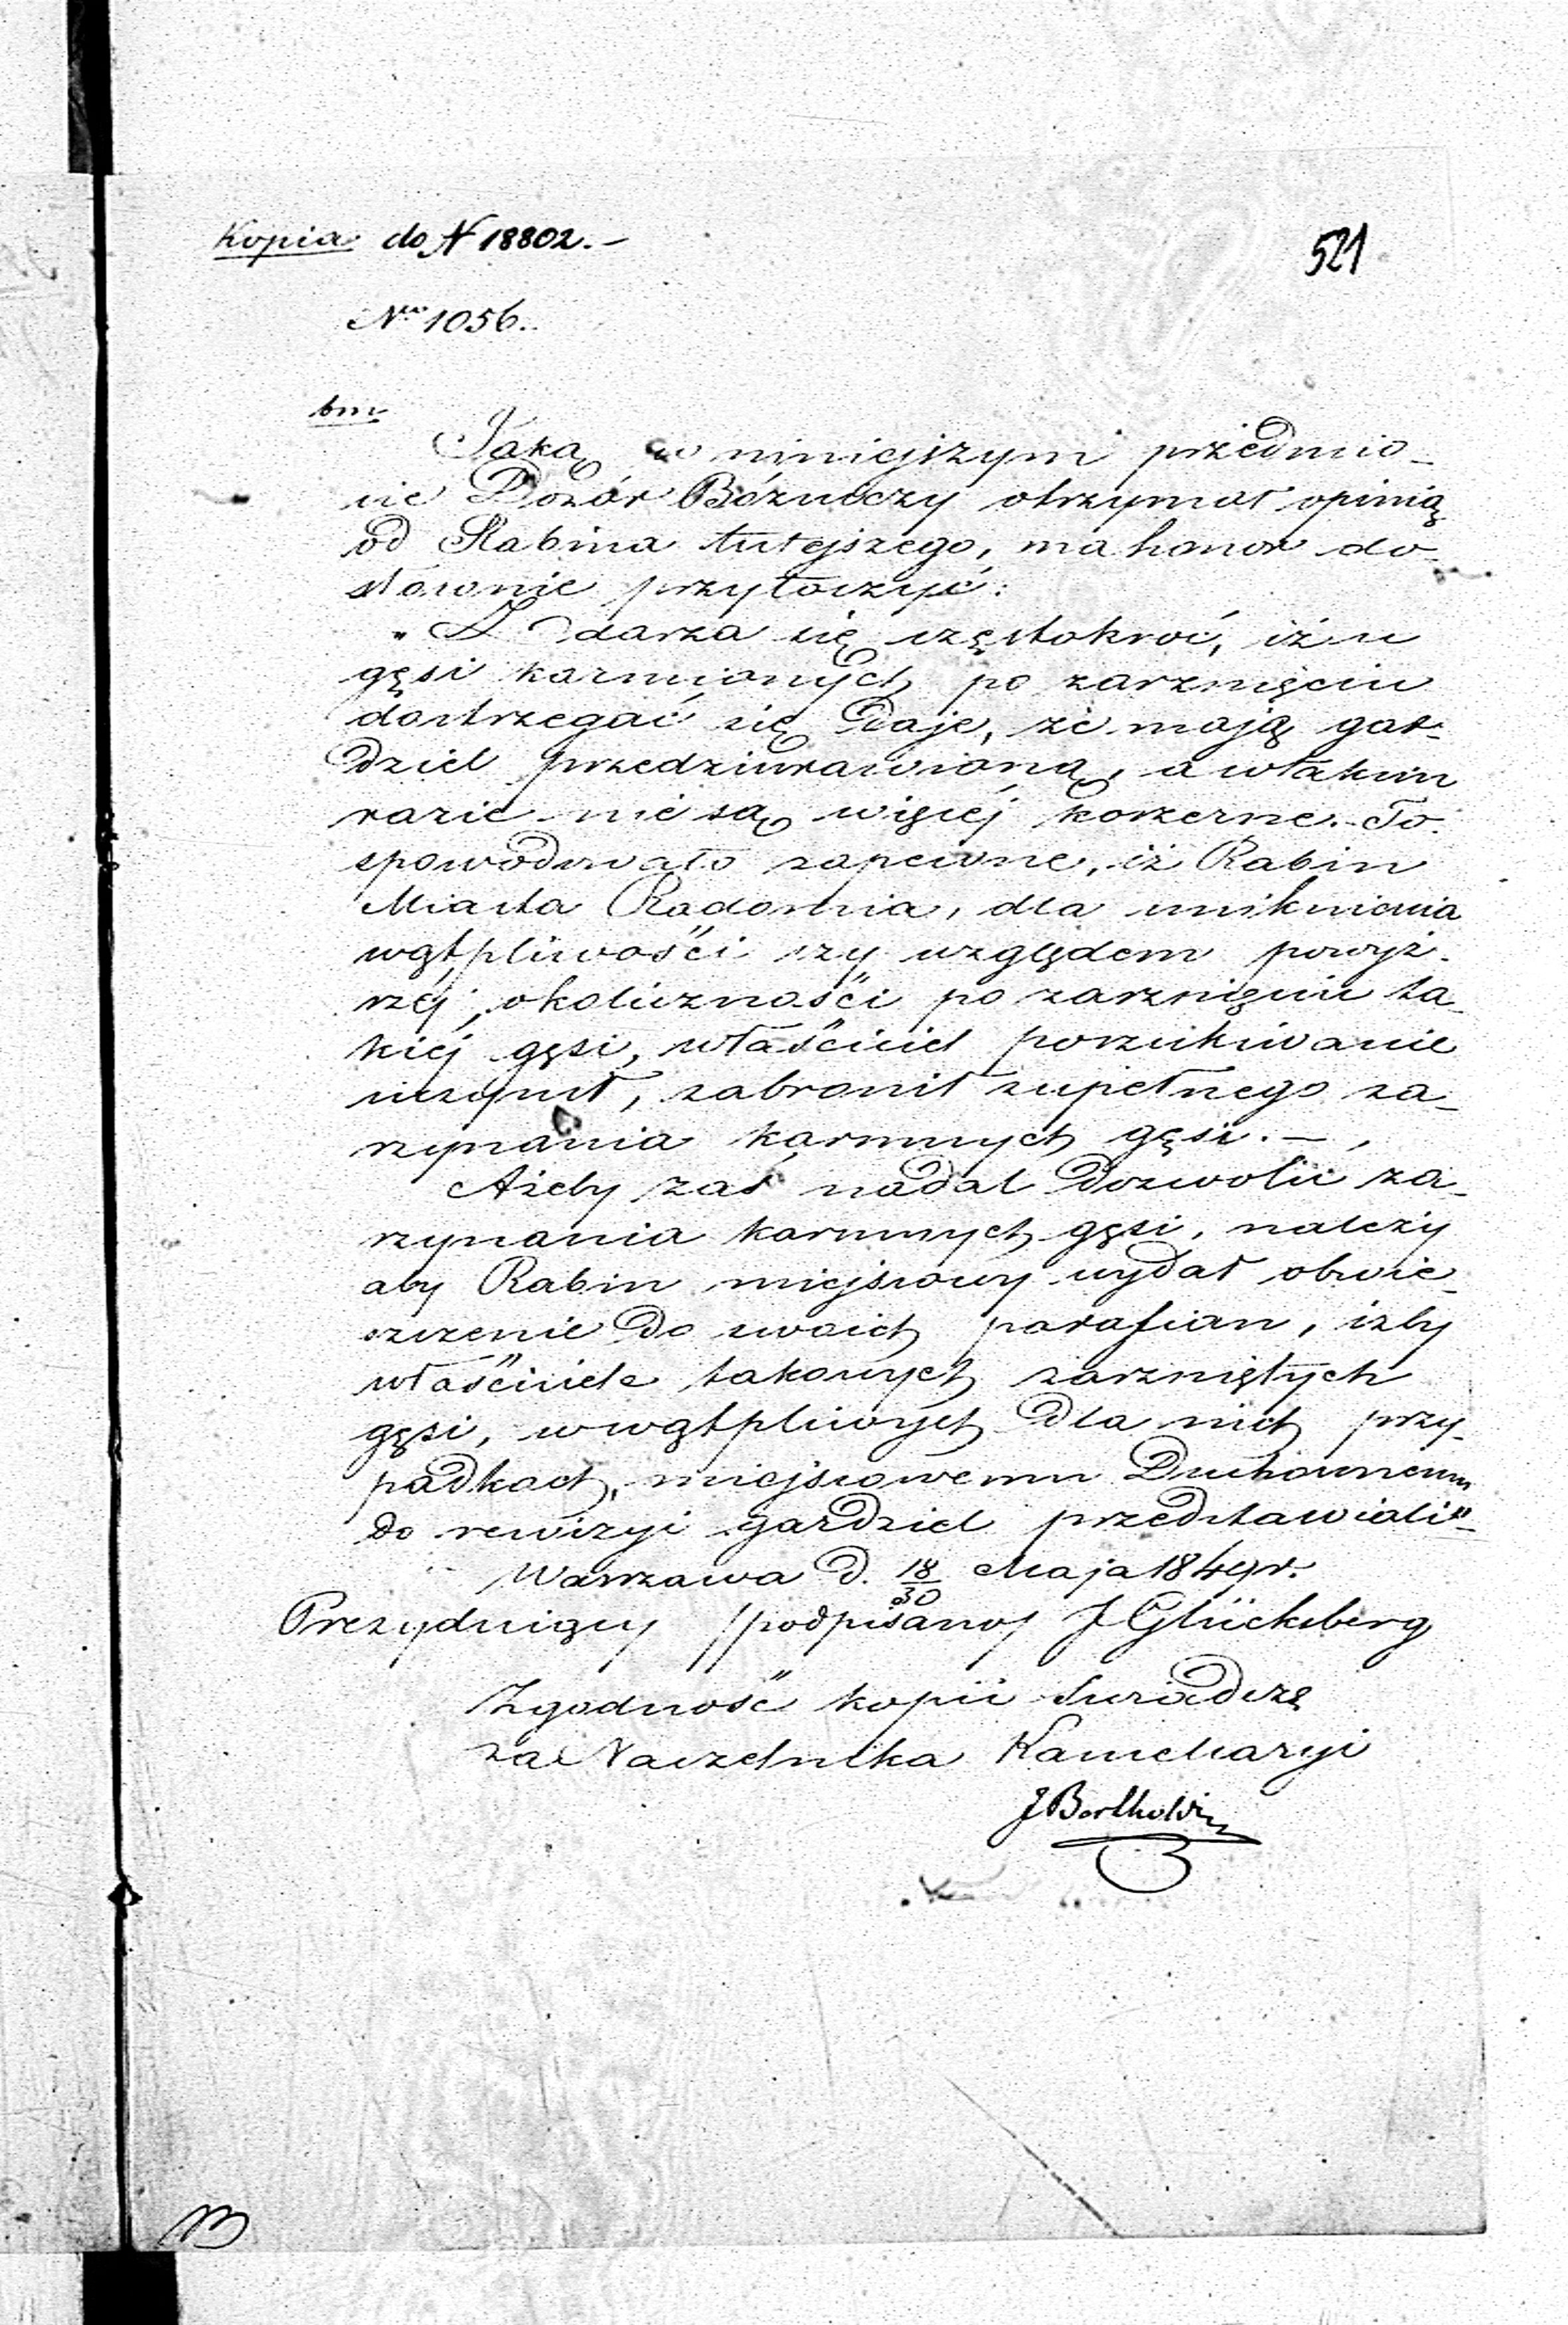 Kopia do N 18802.-
521
Nro 1056.
bm
Jaką w niniejszym przedmio-
cie Dozór Bóżniczy otrzymał opinią
od Rabina tutejszego, ma honor do-
słownie przytoczyć:
"Zdarza się częstokroć, iż u
gęsi karmionych po zarznięciu
dostrzegać się daje, że mają gar-
dziel przedziurawioną, a wtakim
razie nie są więcej koszerne. To
spowodowało zapewne, iż Rabin
Miasta Radomia, dla uniknienia
wątpliwości czy względem powyż-
széj okoliczności po zarznięciu ta-
kiéj gęsi, właściciel poszukiwanie
uczynił, zabronił zupełnego za-
rzynania karmnych gęsi. -
Ażeby zaś nadal dozwolić za-
rzynania karmnych gęsi, należy
aby Rabin miejscowy wydał obwie-
szczenie do swoich parafian, iżby
właściciele takowych zarzniętych
gęsi, w wątpliwych dla nich przy-
padkach, miejscowemu Duchownemu
do rewizyi gardziel przedstawiali"-
Warszawa d. 18/30 Maja 1849 r.
Prezydujący /podpisano/ J Glücksberg
Zgodność kopii świadczę
za Naczelnika Kancellaryi
J Bertholdi